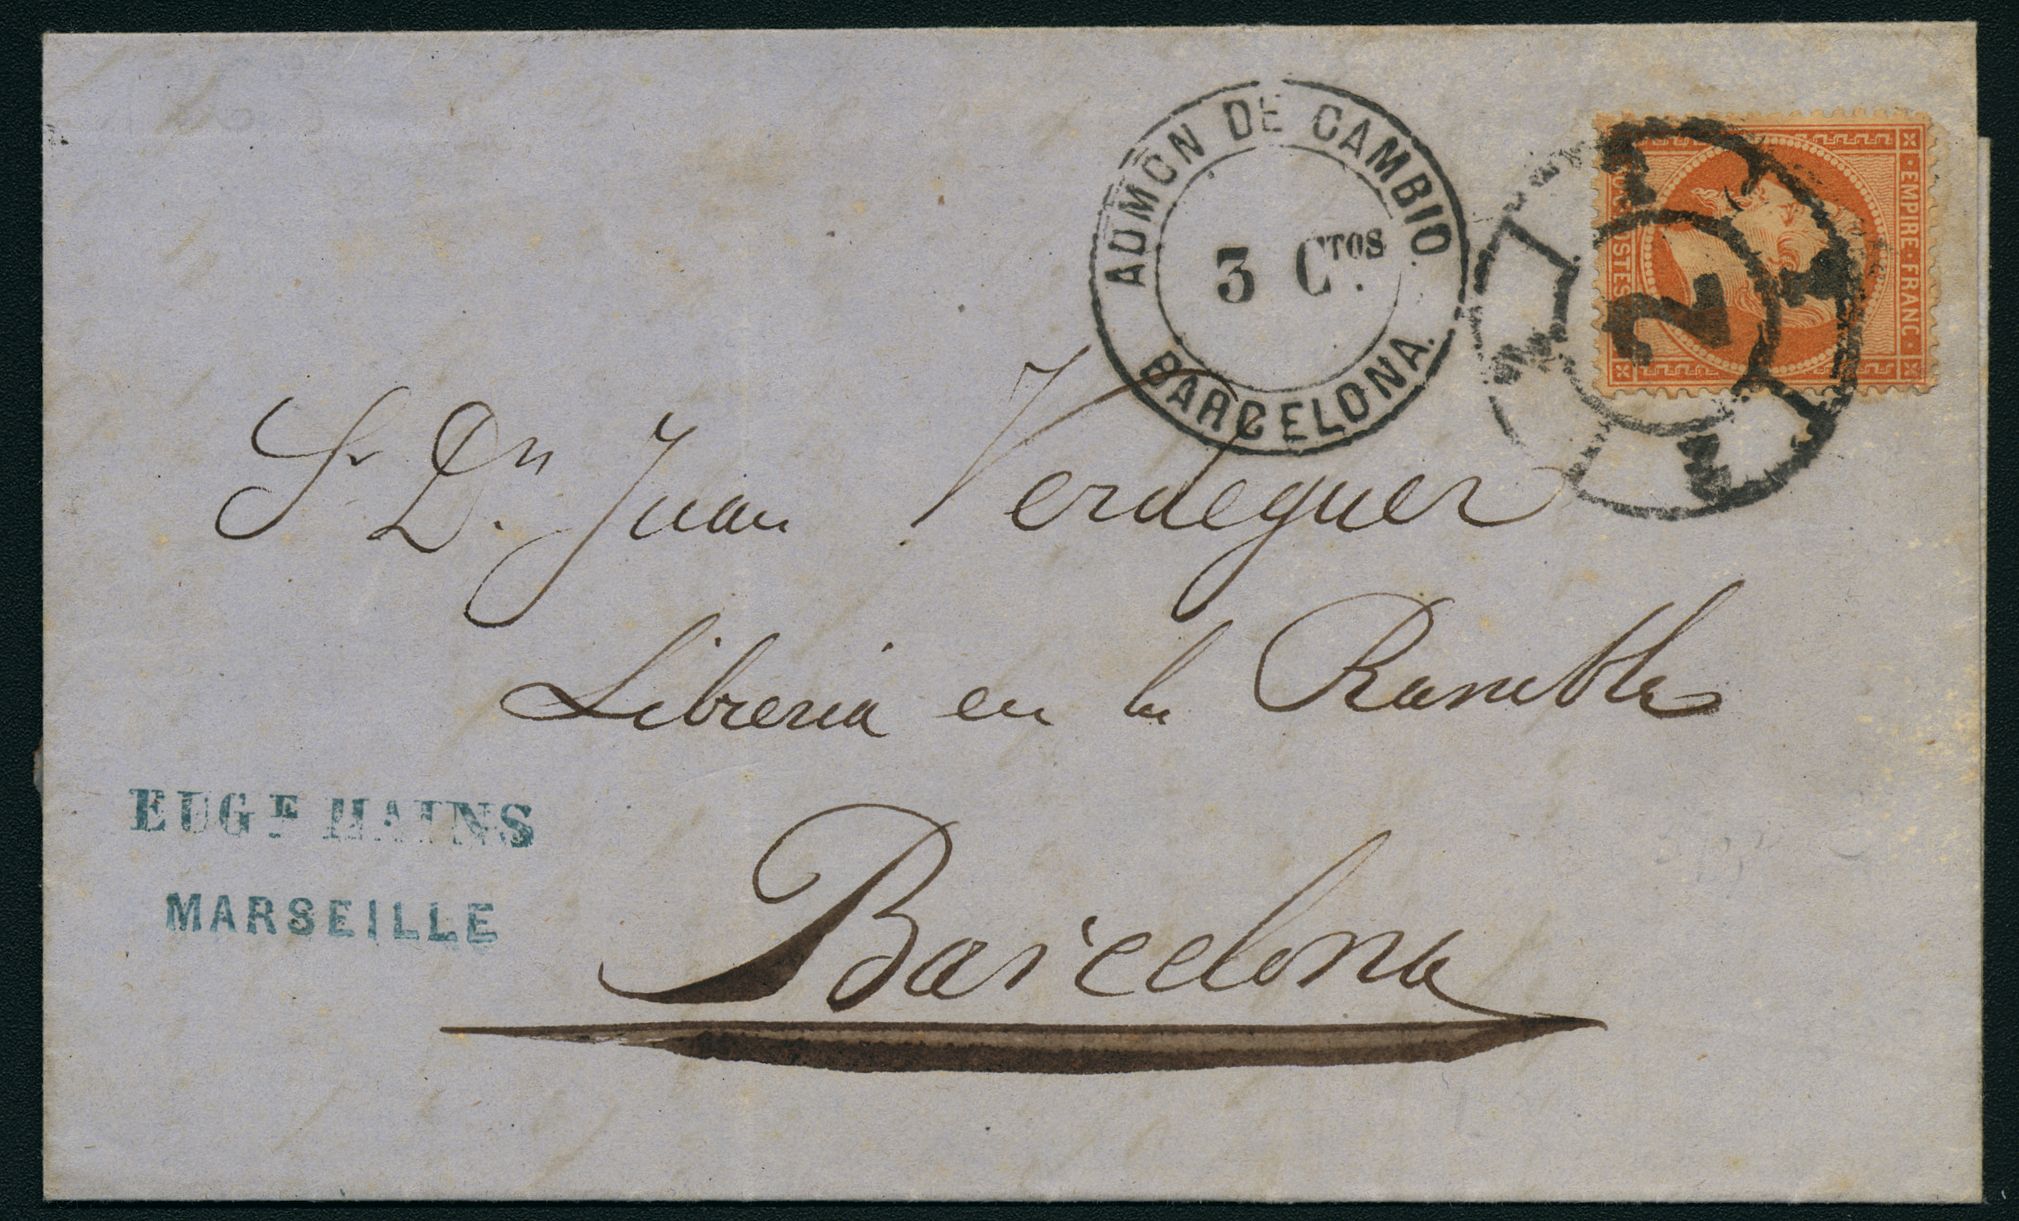 ADMON DE CAMBIO
3 Ctos.
BARCELONA.
EMPIRE·FRANC
POSTES
2
Sr Dn. Juan Verdeguer
Libreria en la Rambla
Barcelona
EUGE HAINS
MARSEILLE